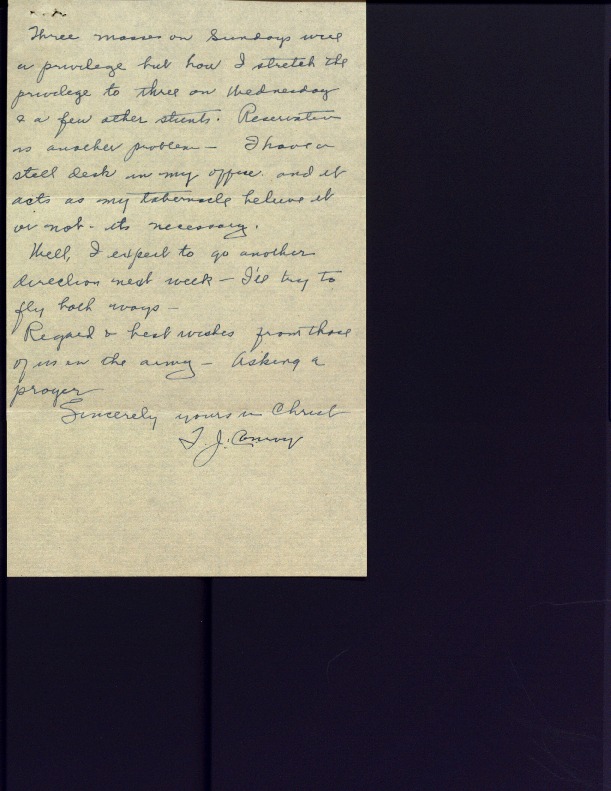 Three masses on Sundays were
a privilege but how I stretch the
privilege to three on Wednesday
& a few other stunts. Reservation
is another problem - I have a
steel desk in my office and it
acts as my tabernacle believe it
or not - its necessary.
Well, I expect to go another
direction next week - I'll try to
fly both ways -
Regard & best wishes from those
of us in the army - Asking a
prayer
Sincerely yours in Christ
T. J. Conroy